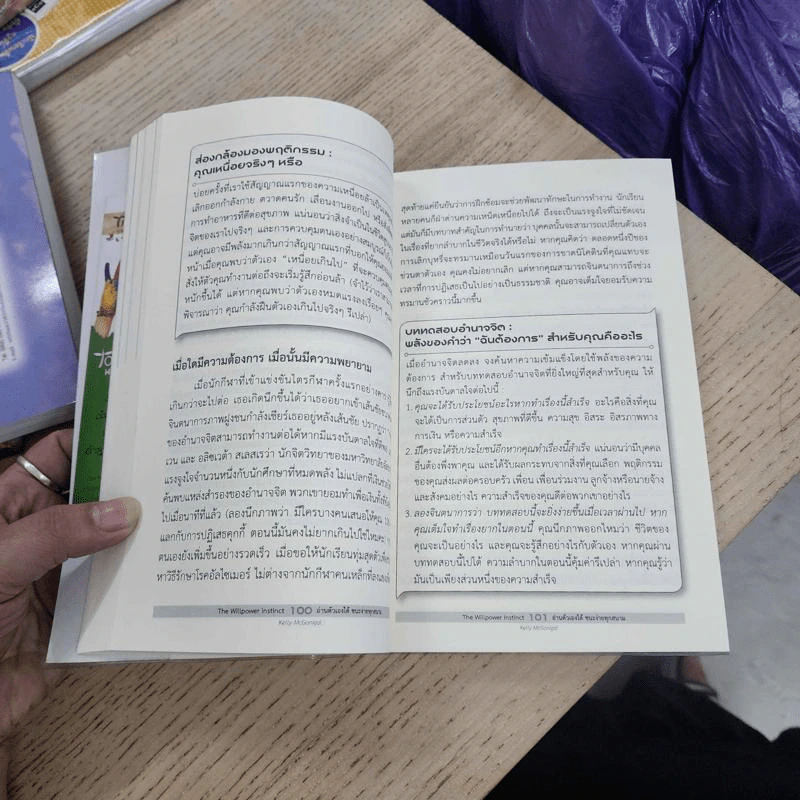 ส่องกล้องมองพฤติกรรม :
คุณเหนื่อยจริงๆ หรือ
บ่อยครั้งที่เราใช้สัญญาณแรกของความเหนื่อยล้าเป็น
เลิกออกกำลังกาย ตวาดคนรัก เลื่อนงานออกไป หรือ
การทำอาหารที่ดีต่อสุขภาพ แน่นอนว่าสิ่งจำเป็นในชีวิต
จิตของเราไปจริงๆ และการควบคุมตนเองอย่างสมบูรณ์
แต่คุณอาจมีพลังมากเกินกว่าสัญญาณแรกที่บอกให้คุณ
หน้าเมื่อคุณพบว่าตัวเอง "เหนื่อยเกินไป" ที่จะควบคุม
สั่งให้ตัวคุณทำงานต่อถึงจะเริ่มรู้สึกอ่อนล้า (จำไว้ว่า
หนักขึ้นได้ แต่หากคุณพบว่าตัวเองหมดแรงลงเรื่อยๆ
พิจารณาว่า คุณกำลังฝืนตัวเองเกินไปจริงๆ รึเปล่า)
เมื่อใดมีความต้องการ เมื่อนั้นมีความพยายาม
เมื่อนักกีฬาที่เข้าแข่งขันไตรกีฬาครั้งแรกอย่าง
เกินกว่าจะไปต่อ เธอเกิดนึกขึ้นได้ว่าเธออยากเข้าเส้นชัย
จินตนาการภาพฝูงชนกำลังเชียร์เธออยู่หลังเส้นชัย ปรากฏว่า
ของอำนาจจิตสามารถทำงานต่อได้หากมีแรงบันดาลใจที่
เวน และ อลิซเวต้า สเลสเรว่า นักจิตวิทยาของมหาวิทยาลัย
แรงจูงใจจำนวนหนึ่งกับนักศึกษาที่หมดพลัง ไม่แปลกที่เงิน
ค้นพบแหล่งสำรองของอำนาจจิต พวกเขายอมทำเพื่อเงิน
ไปเมื่อนาทีที่แล้ว (ลองนึกภาพว่า มีใครบางคนเสนอให้คุณ
แลกกับการปฏิเสธคุกกี้ ตอนนี้มันคงไม่ยากเกินไปใช่ไหมคะ)
ตนเองยังเพิ่มขึ้นอย่างรวดเร็ว เมื่อขอให้นักเรียนทุ่มสุดตัว
หาวิธีรักษาโรคอัลไซเมอร์ ไม่ต่างจากนักกีฬาคนเหล็กที่
The Willpower Instinct 100 อ่านตัวเองได้ ชนะง่ายทุกสนาม
Kelly McGonigal
สุดท้ายแค่ยืนยันว่าการฝึกซ้อมจะช่วยพัฒนาทักษะในการทำงาน นักเรียน
หลายคนก็ฝ่าด่านความเหน็ดเหนื่อยไปได้ ถึงจะเป็นแรงจูงใจที่ไม่ชัดเจน
แต่มันก็มีบทบาทสำคัญในการทำนายว่า บุคคลนั้นจะสามารถเปลี่ยนตัวเอง
ในเรื่องที่ยากลำบากในชีวิตจริงได้หรือไม่ หากคุณคิดว่า ตลอดหนึ่งปีของ
การเลิกบุหรี่จะทรมานเหมือนวันแรกของการขาดนิโคตินที่คุณแทบจะ
ช่วนตาตัวเอง คุณคงไม่อยากเลิก แต่หากคุณสามารถจินตนาการถึงช่วง
เวลาที่การปฏิเสธเป็นไปอย่างเป็นธรรมชาติ คุณอาจเต็มใจยอมรับความ
ทรมานชั่วคราวนี้มากขึ้น
บททดสอบอำนาจจิต :
พลังของคำว่า "ฉันต้องการ" สำหรับคุณคืออะไร
เมื่ออำนาจจิตลดลง จงค้นหาความเข้มแข็งโดยใช้พลังของความ
ต้องการ สำหรับบททดสอบอำนาจจิตที่ยิ่งใหญ่ที่สุดสำหรับคุณ ให้
นึกถึงแรงบันดาลใจต่อไปนี้ :
1. คุณจะได้รับประโยชน์อะไรหากทำเรื่องนี้สำเร็จ อะไรคือสิ่งที่คุณ
จะได้เป็นการส่วนตัว สุขภาพที่ดีขึ้น ความสุข อิสระ อิสรภาพทาง
การเงิน หรือความสำเร็จ
2. มีใครจะได้รับประโยชน์อีกหากคุณทำเรื่องนี้สำเร็จ แน่นอนว่ามีบุคคล
อื่นต้องพึ่งพาคุณ และได้รับผลกระทบจากสิ่งที่คุณเลือก พฤติกรรม
ของคุณส่งผลต่อครอบครัว เพื่อน เพื่อนร่วมงาน ลูกจ้างหรือนายจ้าง
และสังคมอย่างไร ความสำเร็จของคุณดีต่อพวกเขาอย่างไร
3. ลองจินตนาการว่า บททดสอบนี้จะยิ่งง่ายขึ้นเมื่อเวลาผ่านไป หาก
คุณเต็มใจทำเรื่องยากในตอนนี้ คุณนึกภาพออกไหมว่า ชีวิตของ
คุณจะเป็นอย่างไร และคุณจะรู้สึกอย่างไรกับตัวเอง หากคุณผ่าน
บททดสอบนี้ไปได้ ความลำบากในตอนนี้คุ้มค่ารึเปล่า หากคุณรู้ว่า
มันเป็นเพียงส่วนหนึ่งของความสำเร็จ
The Willpower Instinct 101 อ่านตัวเองได้ ชนะง่ายทุกสนาม
Kelly McGonigal